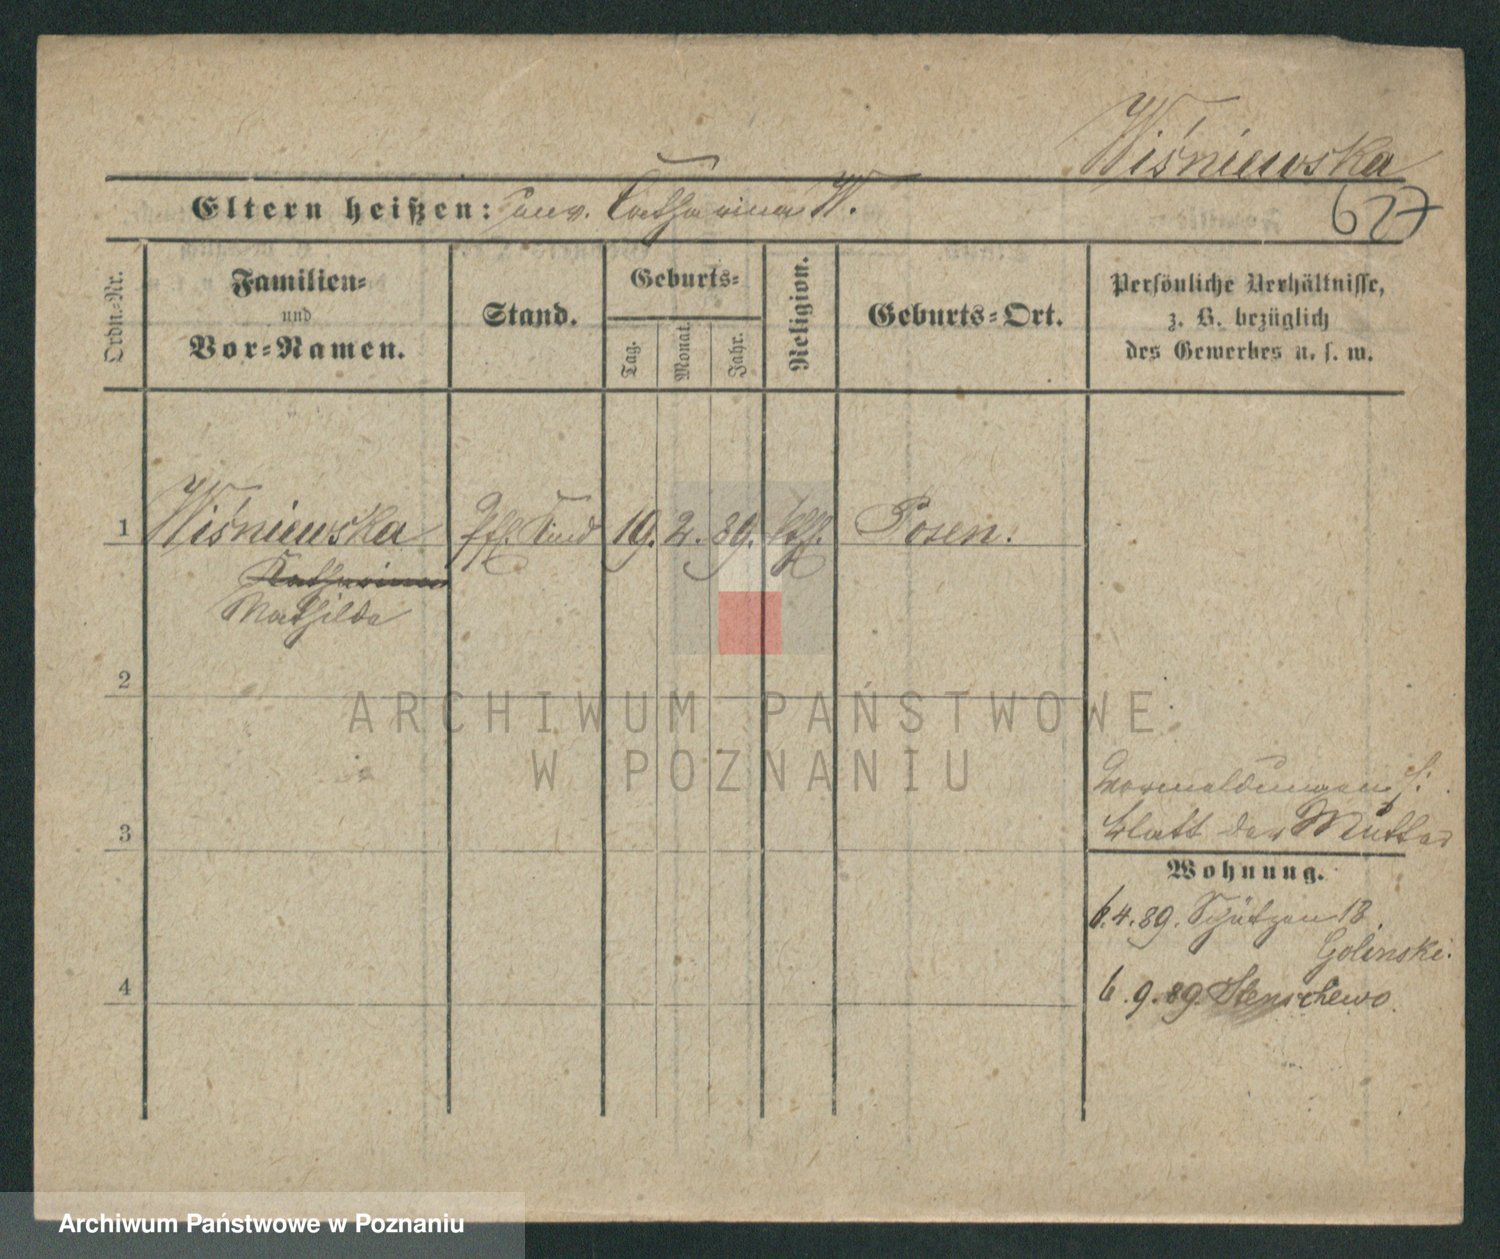 Wiśniewska
627
Eltern heißen: unv. Catharina W.
Ordn.-Nr.
Familien-
und
Vor-Namen.
Stand.
Geburts-
Tag.
Monat.
Jahr.
Religion.
Geburts-Ort.
Persönliche Verhältnisse,
z. B. bezüglich
des Gewerbes u. s. w.
1 Wiśniewska Pfl. Kind 19. 2. 89. kath. Posen.
Katharina
Mathilda
2
3
4
Vormeldungen s.
Blatt der Mutter
Wohnung.
6.4.89. Schützen 18.
Golinski.
6.9.89. Stenschewo
ARCHIWUM PAŃSTWOWE
W POZNANIU
Archiwum Państwowe w Poznaniu